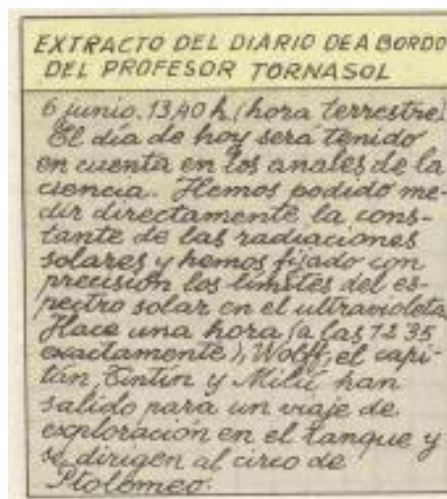 EXTRACTO DEL DIARIO DE A BORDO
DEL PROFESOR TORNASOL
6 junio. 13,40 h. (hora terrestre)
El día de hoy será tenido
en cuenta en los anales de la
ciencia. Hemos podido me
dir directamente la cons-
tante de las radiaciones
solares y hemos fijado con
precisión los límites del es-
pectro solar en el ultravioleta
Hace una hora (a las 12 35
exactamente), Wolff, el capi-
tán, Tintín y Milú han
salido para un viaje de
exploración en el tanque y
se dirigen al circo de
Ptolomeo.